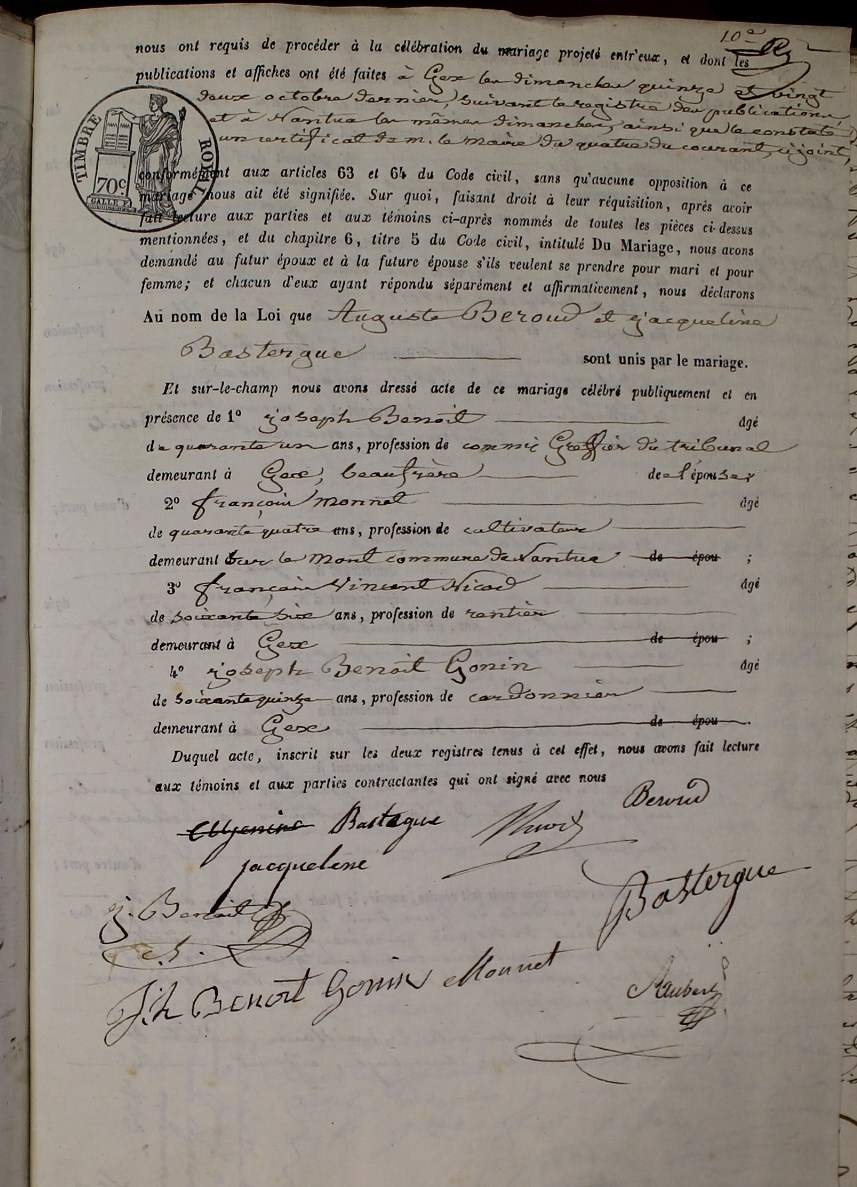 10e
nous ont requis de procéder à la célébration du mariage projeté entr'eux, et dont les
publications et affiches ont été faites à Gex les dimanches quinze et vingt
deux octobre dernier, suivant le registre des publications
et à Nantua les mêmes dimanches, ainsi que le constate
un certificat de m. le maire du quatre du courant, ci joint,
TIMBRE ROYAL
70c
conformément aux articles 63 et 64 du Code civil, sans qu'aucune opposition à ce
mariage nous ait été signifiée. Sur quoi, faisant droit à leur réquisition, après avoir
fait lecture aux parties et aux témoins ci-après nommés de toutes les pièces ci-dessus
mentionnées, et du chapitre 6, titre 5 du Code civil, intitulé Du Mariage, nous avons
demandé au futur époux et à la future épouse s'ils veulent se prendre pour mari et pour
femme; et chacun d'eux ayant répondu séparément et affirmativement, nous déclarons
Au nom de la Loi que Auguste Beroud et jacqueline
Bastergue sont unis par le mariage.
Et sur-le-champ nous avons dressé acte de ce mariage célébré publiquement et en
présence de 1º joseph Benoit âgé
de quarante un ans, profession de commis Greffier du tribunal
demeurant à Gex, beaufrère de l'épouse;
2º françois monnet âgé
de quarante quatre ans, profession de cultivateur
demeurant sur le Mont commune de Nantua de épou ;
3º françois Vincent Nicod âgé
de soixante six ans, profession de rentier
demeurant à Gex de épou ;
4º joseph Benoit Gonin âgé
de soixante quinze ans, profession de cordonnier
demeurant à Gex de épou .
Duquel acte, inscrit sur les deux registres tenus à cet effet, nous avons fait lecture
aux témoins et aux parties contractantes qui ont signé avec nous
Bastegue Nicod Beroud
jacqueline
j. Benoit Bastergue
c. g.
J.h Benoit Gonin Monnet